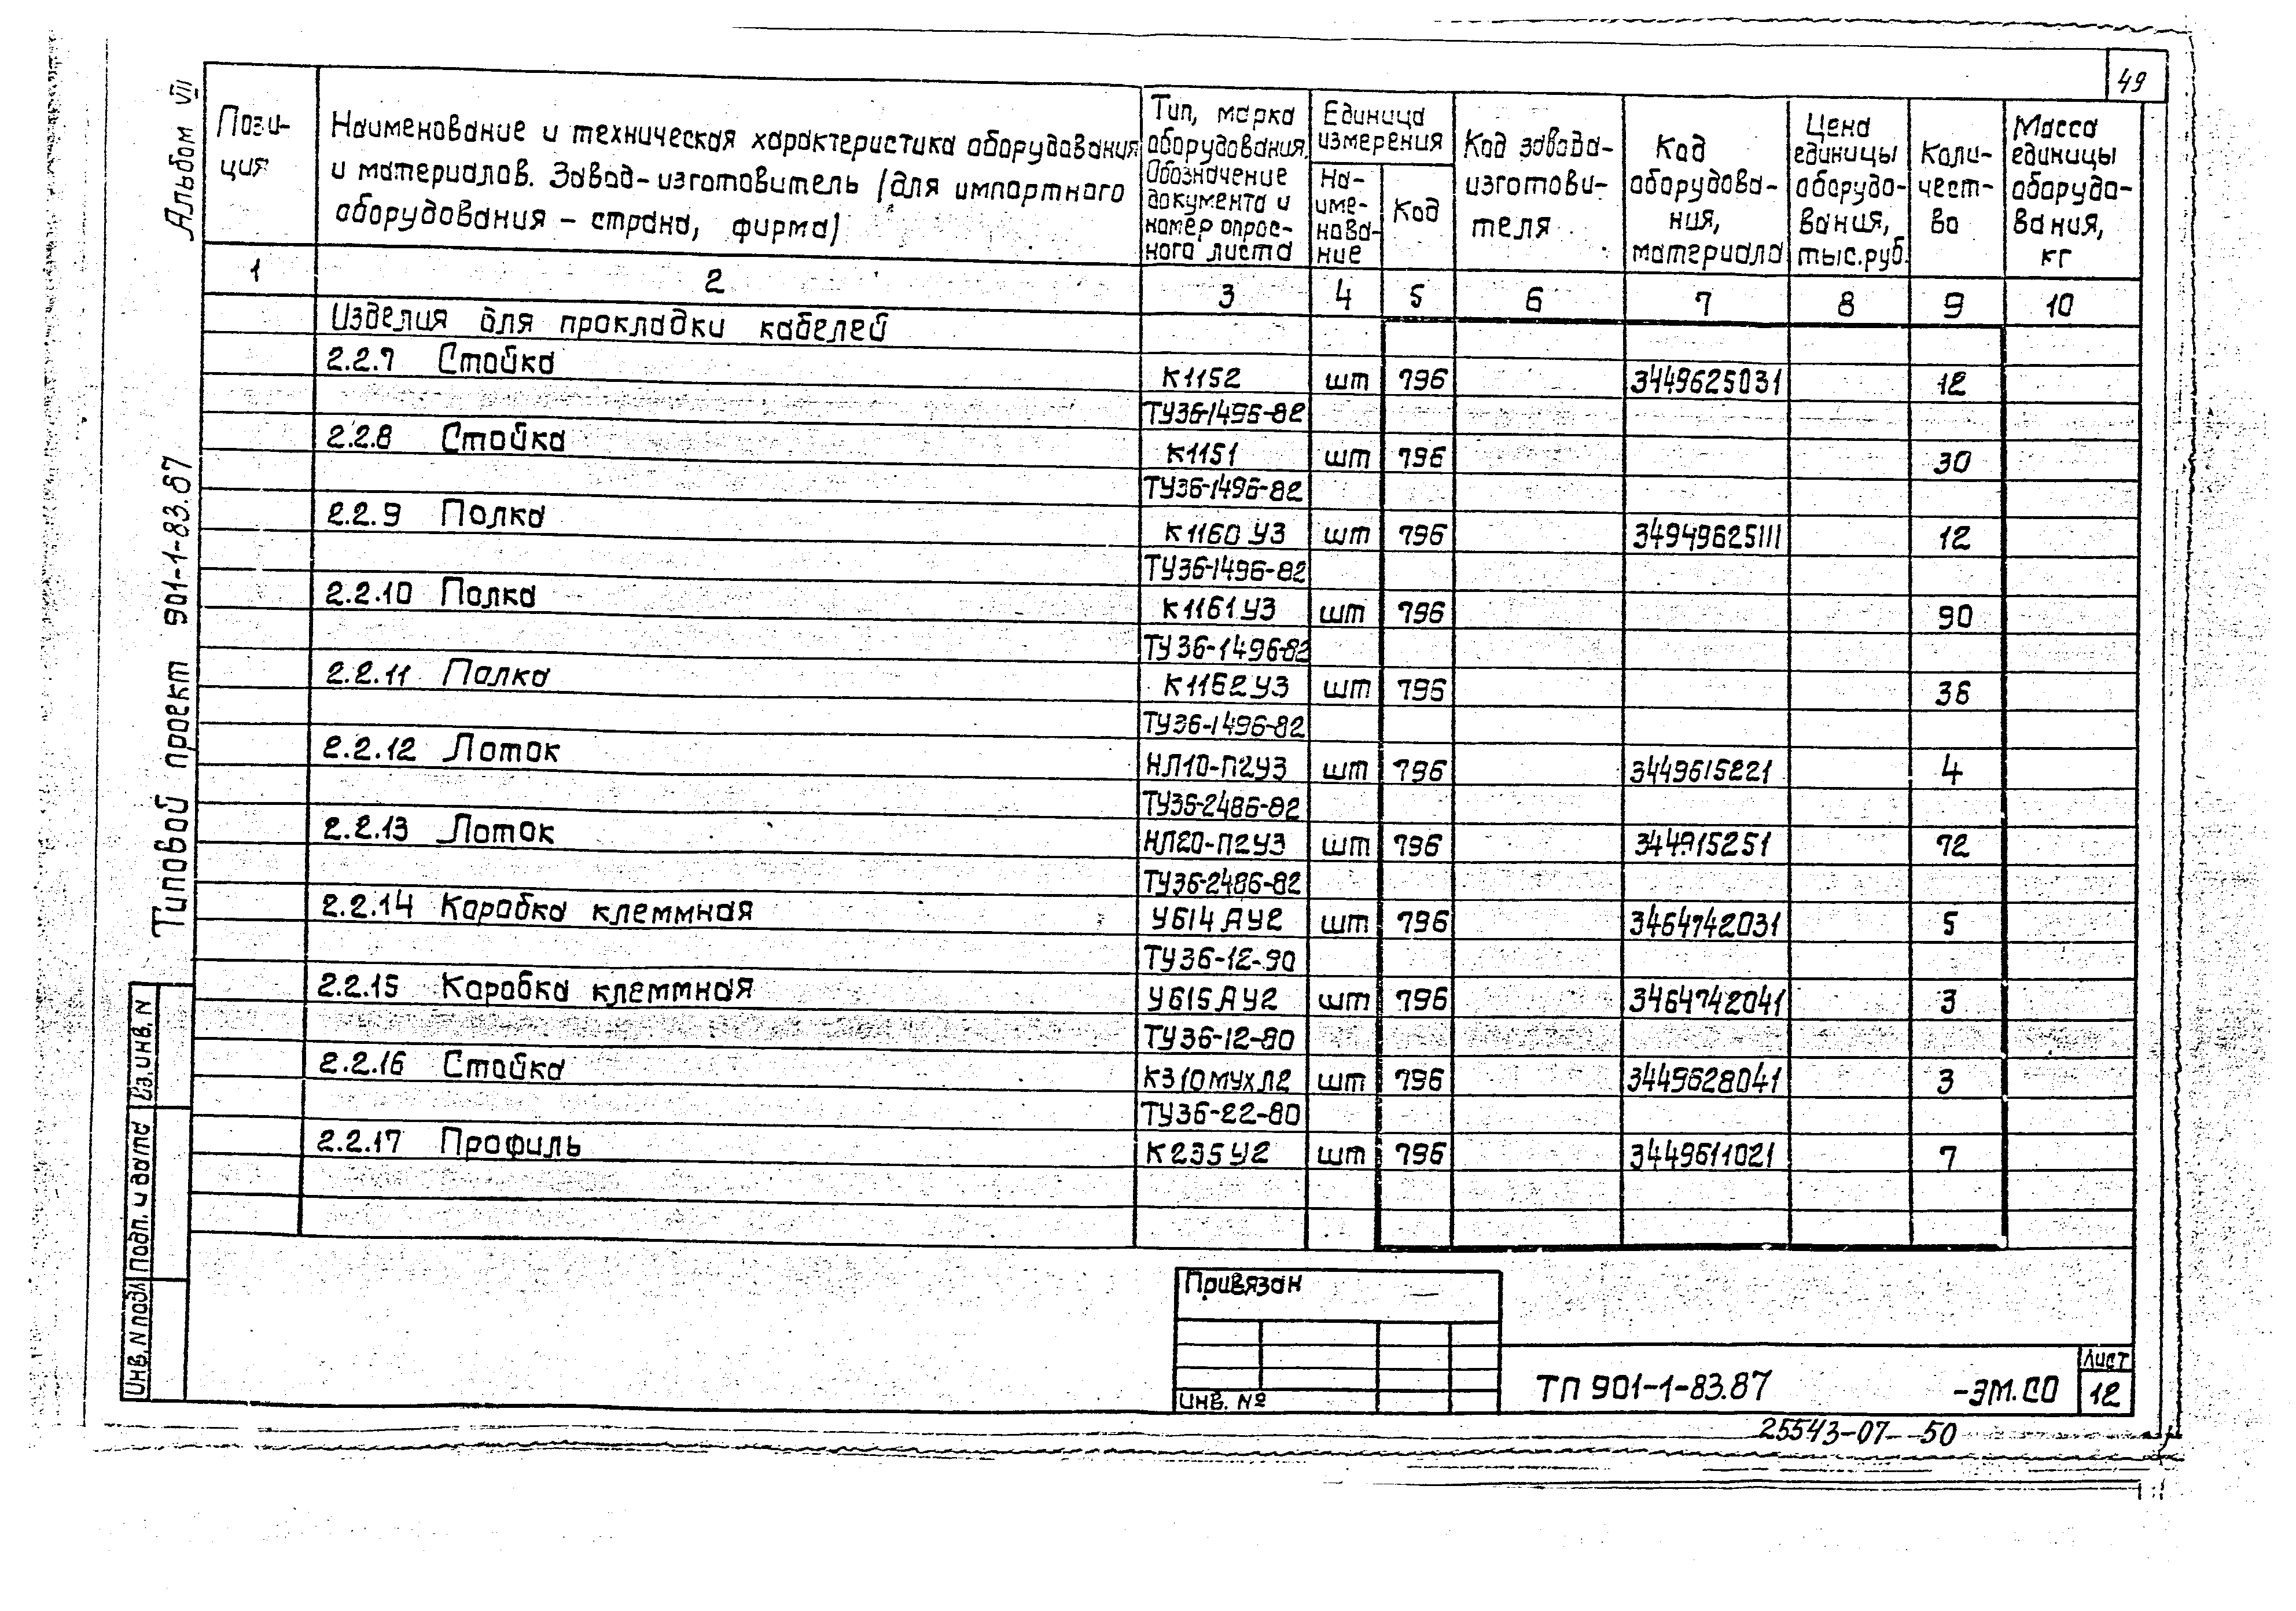 49
Альбом VII
Типовой проект 901-1-83.87
Пози-
ция
Наименование и техническая характеристика оборудования
и материалов. Завод-изготовитель (для импортного
оборудования - страна, фирма)
Тип, марка
оборудования.
Обозначение
документа и
номер опрос-
ного листа
Единица
измерения
На-
име-
нова-
ние
Код
Код завода-
изготови-
теля
Код
оборудова-
ния,
материала
Цена
единицы
оборудо-
вания,
тыс.руб.
Коли-
чест-
во
Масса
единицы
оборудо-
вания,
кг
1 2 3 4 5 6 7 8 9 10
Изделия для прокладки кабелей
2.2.7 Стойка К1152 шт 796 3449625031 12
ТУ36-1496-82
2.2.8 Стойка К1151 шт 796 30
ТУ36-1496-82
2.2.9 Полка К1160 У3 шт 796 34949625111 12
ТУ36-1496-82
2.2.10 Полка К1161 У3 шт 796 90
ТУ36-1496-82
2.2.11 Полка К1162У3 шт 796 36
ТУ36-1496-82
2.2.12 Лоток НЛ10-П2У3 шт 796 3449615221 4
ТУ36-2486-82
2.2.13 Лоток НЛ20-П2У3 шт 796 344915251 72
ТУ36-2486-82
2.2.14 Коробка клеммная У614 АУ2 шт 796 3464742031 5
ТУ36-12-90
2.2.15 Коробка клеммная У615 АУ2 шт 796 3464742041 3
ТУ36-12-80
2.2.16 Стойка К310МУХЛ2 шт 796 3449628041 3
ТУ36-22-80
2.2.17 Профиль К235У2 шт 796 3449611021 7
Вз.инв. N
Подп. и дата
Инв. N подл
Привязан
Инв. №
ТП 901-1-83.87 -ЭМ.СО
Лист
12
25543-07 50